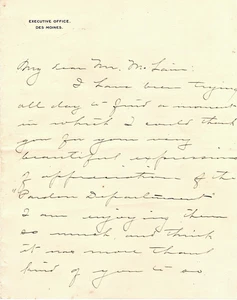 EXECUTIVE OFFICE.
DES MOINES.
My dear Mr. McLain:
I have been trying
all day to find a moment
in which I could thank
you for your very
beautiful expressions
of appreciation of the
"Pardon Department"
I am enjoying them
so much and think
it was more than
kind of you to so